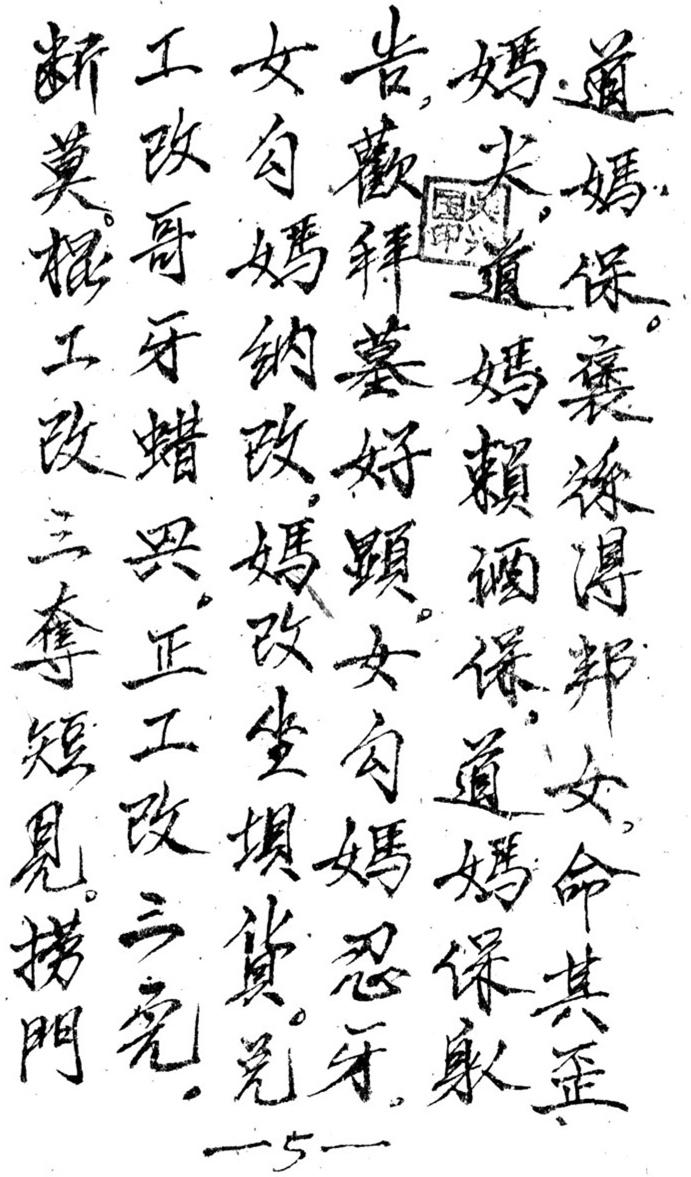 道媽保。褒係得邦女。命其歪
媽尖。道媽賴酒保。道媽保躬
告。歡拜墓好顕。女勾媽忍牙。
女勾媽納改。媽改坐垻貨。兑
工改哥牙蜡𠮿。正工改三亮。
断莫。棍工改三奪短見。撈門
—5—